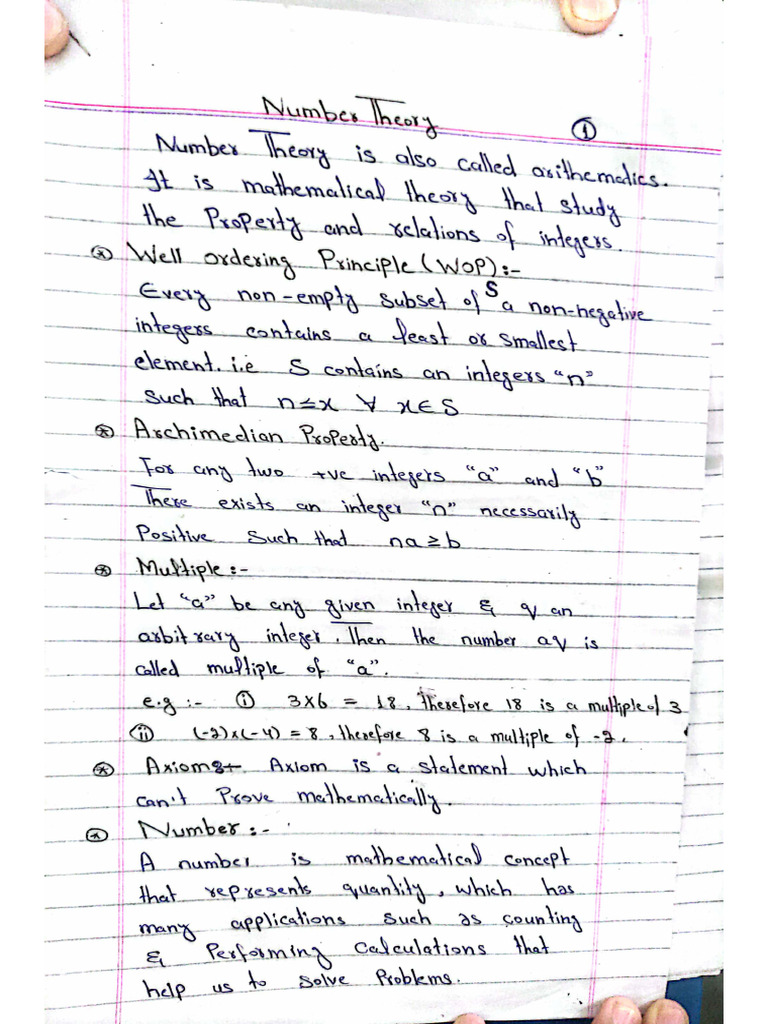 Number Theory
①
Number Theory is also called arithematics.
It is mathematical theory that study
the Property and relations of integers.
⊛ Well ordering Principle (WOP):-
Every non-empty subset of S a non-negative
integers contains a least or smallest
element. i.e S contains an integers "n"
such that n≤x ∀ x∈S
⊛ Archimedian Property.
For any two +ve integers "a" and "b"
There exists an integer "n" necessarily
Positive such that na≥b
⊛ Multiple:-
Let "a" be any given integer & q an
arbitrary integer. Then the number aq is
called multiple of "a".
e.g :- ⓘ 3×6 = 18, Therefore 18 is a multiple of 3
ⓘⓘ (-2)×(-4) = 8, therefore 8 is a multiple of -2.
⊛ Axioms:- Axiom is a statement which
can't Prove mathematically.
⊛ Number:-
A number is mathematical concept
that represents quantity, which has
many applications such as counting
& Performing Calculations that
help us to solve Problems.